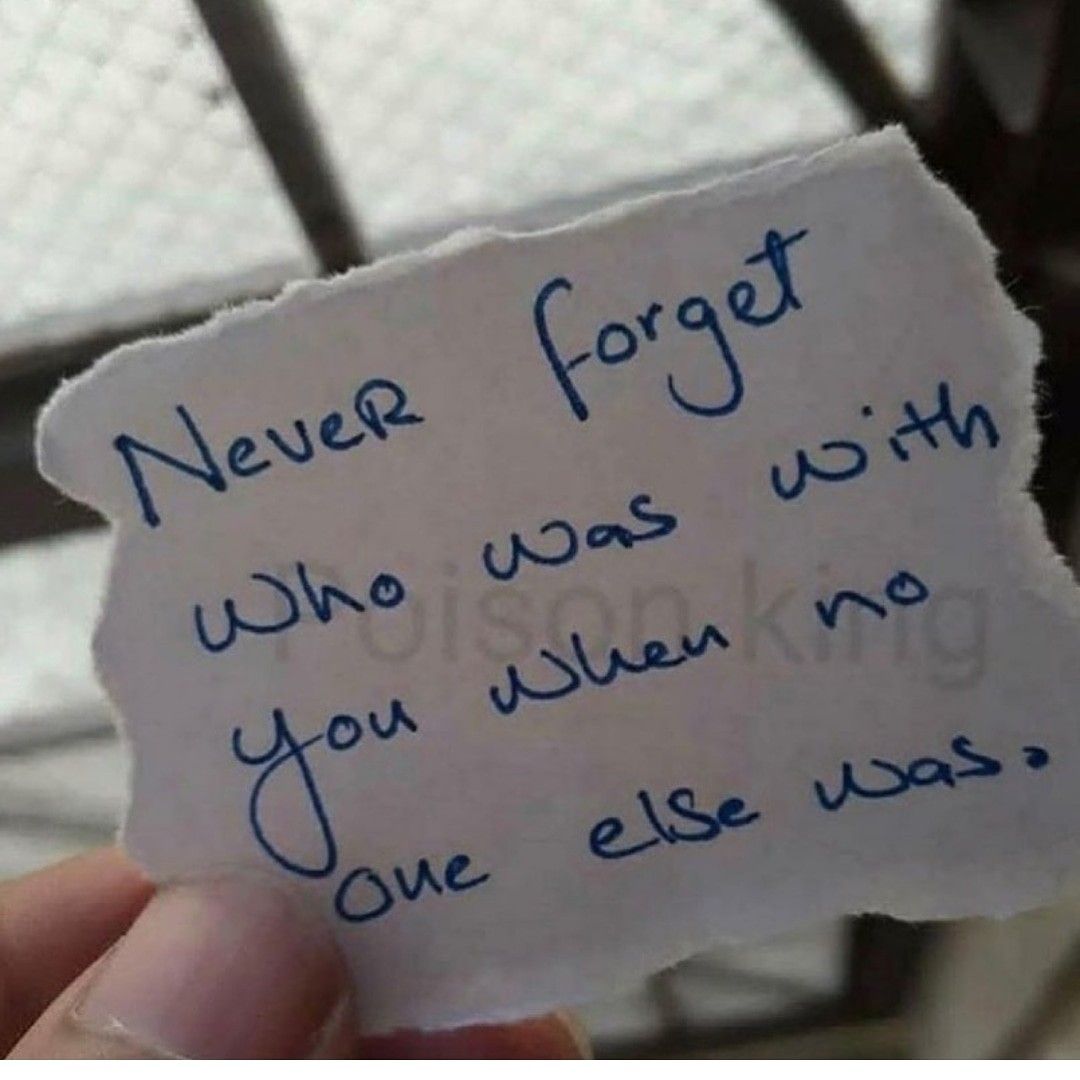 Never forget
who was with
Poison king
you when no
one else was.